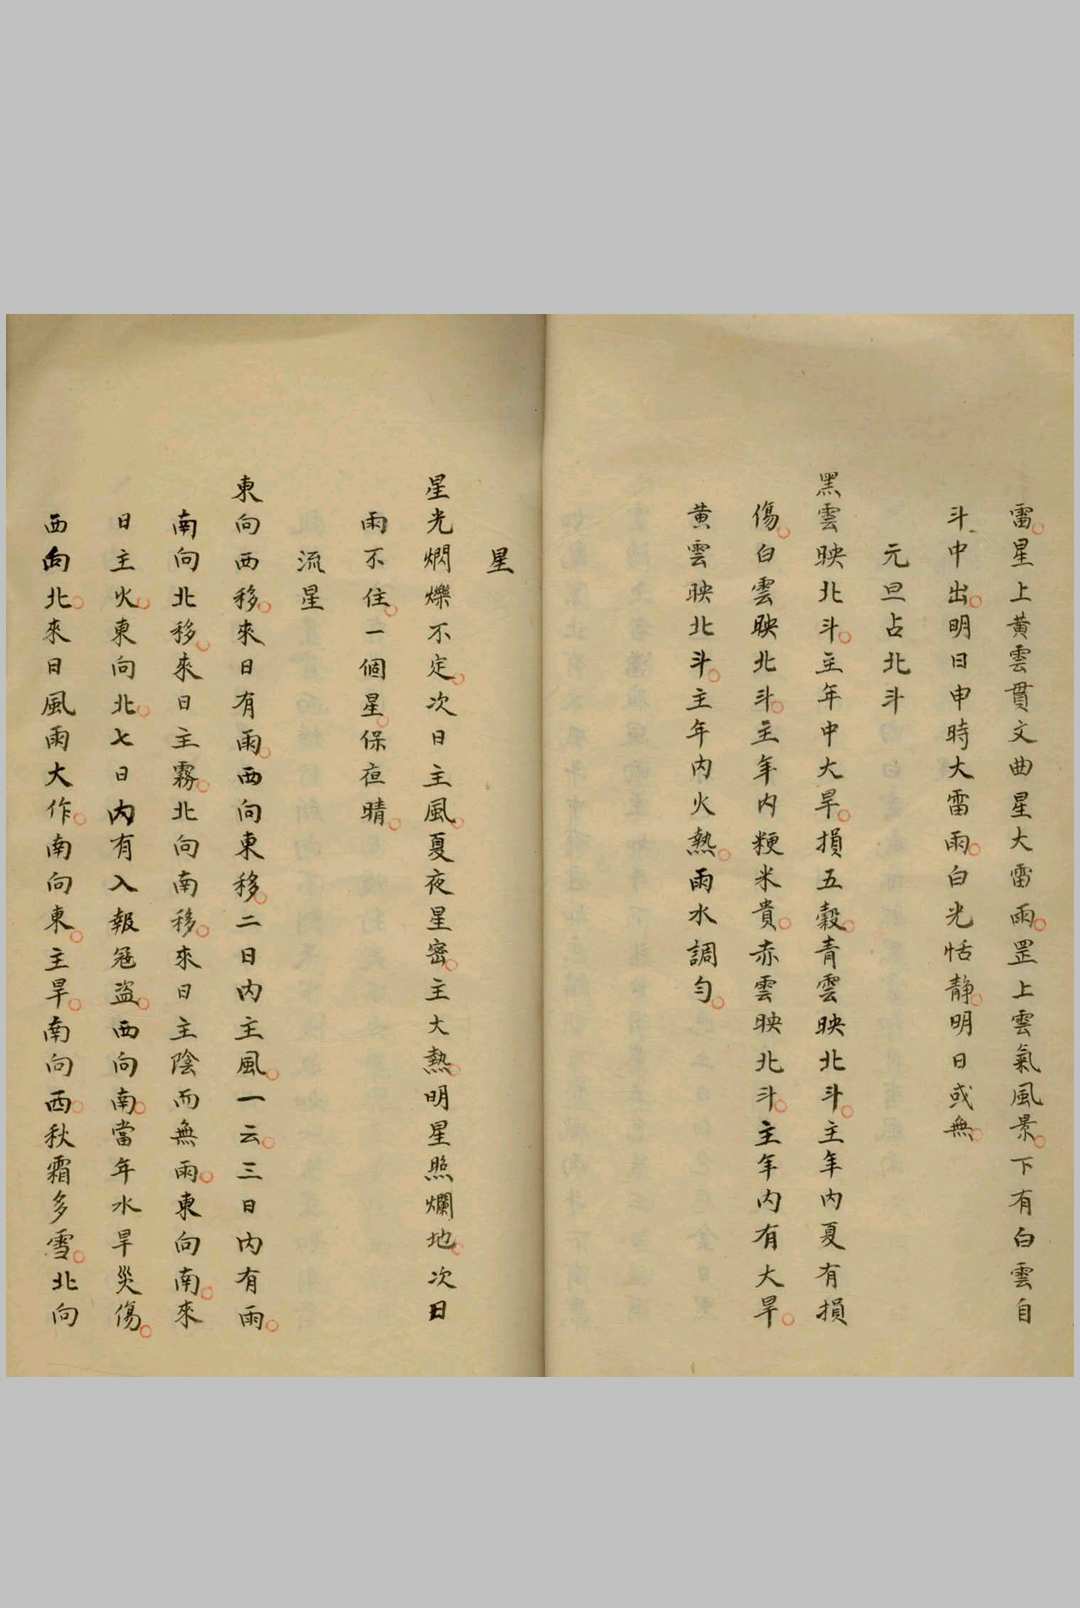 雷星上黃雲貫文曲星大雷雨罡上雲氣風景下有白雲自
斗中出明日申時大雷雨白光恬靜明日或無
元旦占北斗
黑雲映北斗主年中大旱損五穀青雲映北斗主年內夏有損
傷白雲映北斗主年內粳米貴赤雲映北斗主年内有大旱
黄雲映北斗主年内火熱雨水調勻
星
星光爛爍不定次日主風夏夜星密主大熱明星照爛地次日
雨不住一個星保夜晴
流星
東向西移來日有雨西向東移二日内主風一云三日内有雨
南向北移來日主霧北向南移來日主陰而無雨東向南來
日主火東向北七日内有入報冦盗西向南當年水旱災傷
西向北來日風雨大作南向東主旱南向西秋霜多雪北向